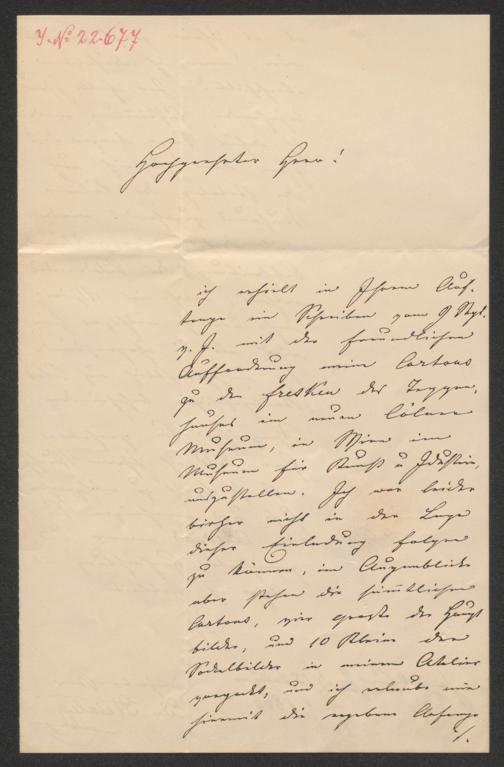 J. No 22-677
Hochgeehrter Herr!
ich erhielt in Ihrem Auf-
trage ein Schreiben vom 9 Sept.
v. J. mit der freundlichen
Aufforderung meine Cartons
zu den Fresken des Treppen-
hauses im neuen Cölner
Museum, in Wien im
Museum für Kunst u Industrie,
auszustellen. Ich war leider
bisher nicht in der Lage
dieser Einladung folgen
zu können, im Augenblicke
aber stehen die sämtlichen
Cartons, vier große der Haupt
bilder, und 10 kleine der
Sockelbilder in meinem Atelier
verpackt, und ich erlaube mir
hiermit die ergebene Anfrage
./.